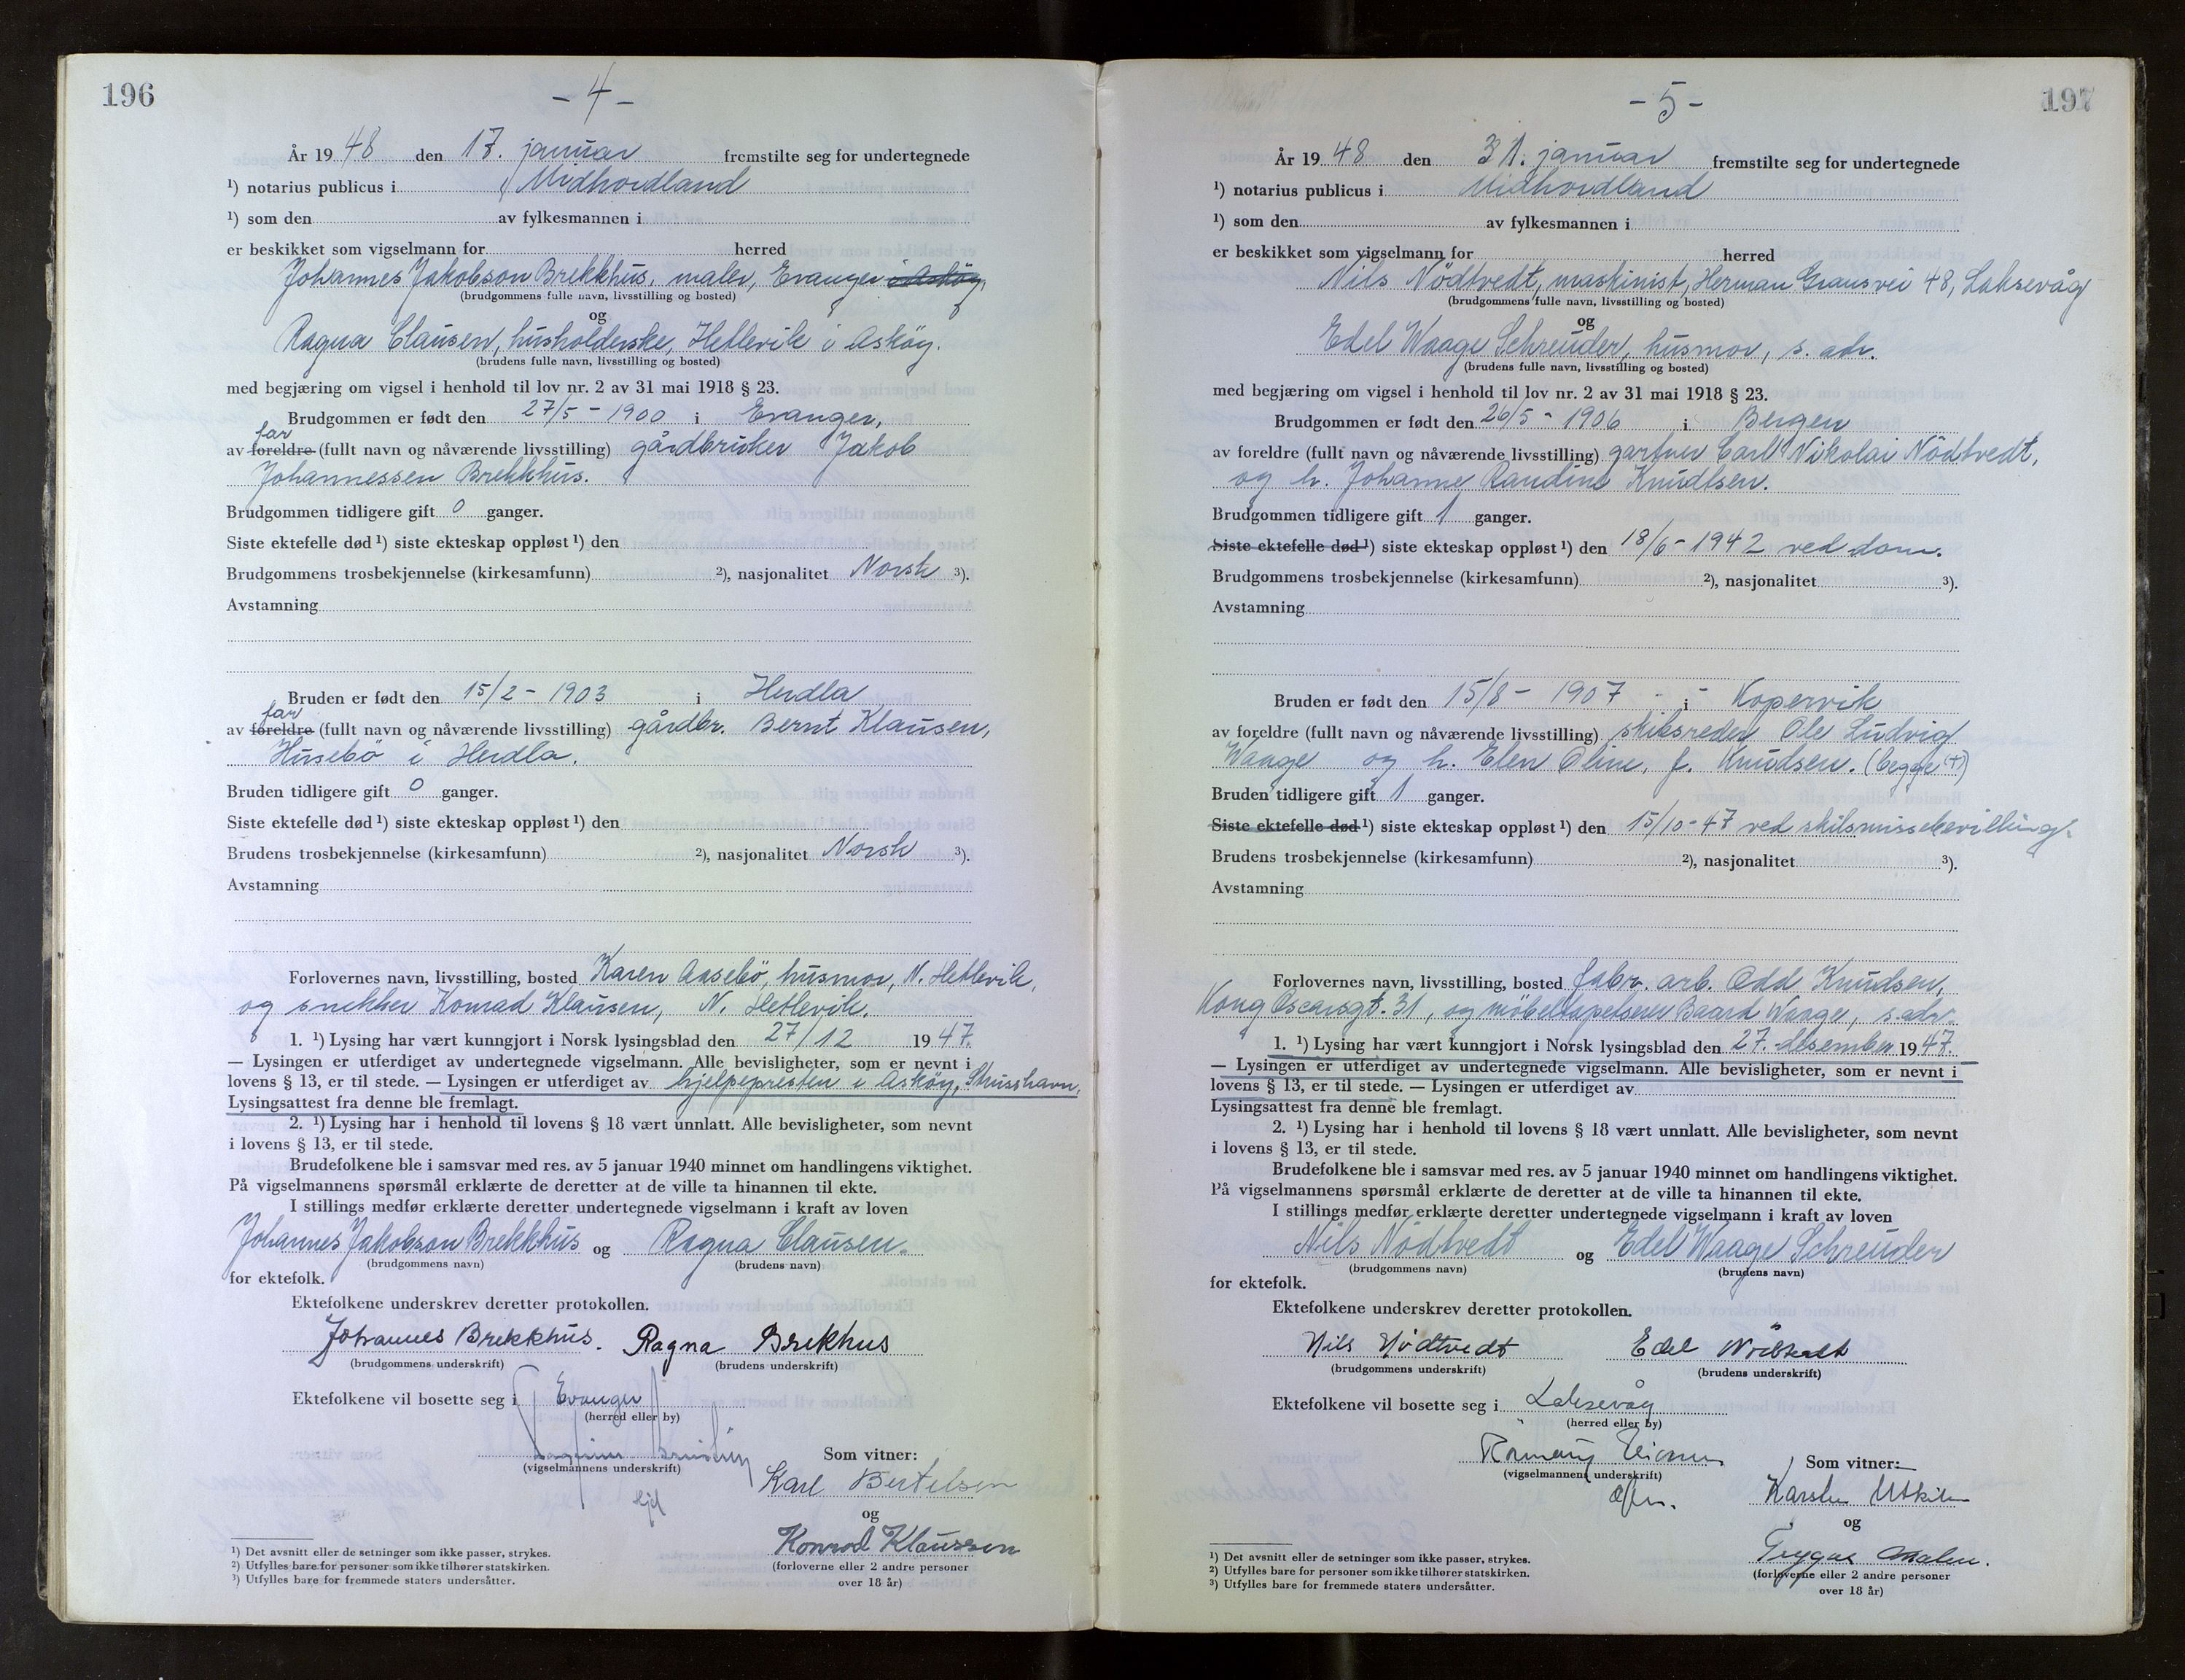 196
- 4 -
År 19 48 den 17. januar fremstilte seg for undertegnede
¹) notarius publicus i Midhordland
¹) som den av fylkesmannen i
er beskikket som vigselmann for herred
Johannes Jakobson Brekkhus, maler, Evanger
(brudgommens fulle navn, livsstilling og bosted)
og
Ragna Clausen, husholderske, Hetlevik i Asköy.
(brudens fulle navn, livsstilling og bosted)
med begjæring om vigsel i henhold til lov nr. 2 av 31 mai 1918 § 23.
Brudgommen er født den 27/5 - 1900 i Evanger,
far
av foreldre (fullt navn og nåværende livsstilling) gårdbruker Jakob
Johannessen Brekkhus.
Brudgommen tidligere gift 0 ganger.
Siste ektefelle død ¹) siste ekteskap oppløst ¹) den
Brudgommens trosbekjennelse (kirkesamfunn) ²), nasjonalitet Norsk ³).
Avstamning
Bruden er født den 15/2 - 1903 i Herdla
far
av foreldre (fullt navn og nåværende livsstilling) gårdbr. Bernt Klausen,
Husebö i Herdla.
Bruden tidligere gift 0 ganger.
Siste ektefelle død ¹) siste ekteskap oppløst ¹) den
Brudens trosbekjennelse (kirkesamfunn) ²), nasjonalitet Norsk ³).
Avstamning
Forlovernes navn, livsstilling, bosted Karen Aasebö, husmor, N. Hetlevik,
og snekker Konrad Klausen, N. Hetlevik.
1. ¹) Lysing har vært kunngjort i Norsk lysingsblad den 27/12 1947.
— Lysingen er utferdiget av undertegnede vigselmann. Alle bevisligheter, som er nevnt i
lovens § 13, er til stede. — Lysingen er utferdiget av hjelpepresten i Asköy, Strusshavn.
Lysingsattest fra denne ble fremlagt.
2. ¹) Lysing har i henhold til lovens § 18 vært unnlatt. Alle bevisligheter, som nevnt
i lovens § 13, er til stede.
Brudefolkene ble i samsvar med res. av 5 januar 1940 minnet om handlingens viktighet.
På vigselmannens spørsmål erklærte de deretter at de ville ta hinannen til ekte.
I stillings medfør erklærte deretter undertegnede vigselmann i kraft av loven
Johannes Jakobson Brekkhus og Ragna Clausen.
(brudgommens navn) (brudens navn)
for ektefolk.
Ektefolkene underskrev deretter protokollen.
Johannes Brekkhus. Ragna Brekhus
(brudgommens underskrift) (brudens underskrift)
Ektefolkene vil bosette seg i Evanger
(herred eller by)
Som vitner:
(vigselmannens underskrift)
Karl Bertelsen
og
Konrad Klaussen
(forloverne eller 2 andre personer
over 18 år)
¹) Det avsnitt eller de setninger som ikke passer, strykes.
²) Utfylles bare for personer som ikke tilhører statskirken.
³) Utfylles bare for fremmede staters undersåtter.
197
- 5 -
År 19 48 den 31. januar fremstilte seg for undertegnede
¹) notarius publicus i Midhordland
¹) som den av fylkesmannen i
er beskikket som vigselmann for herred
Nils Nödtvedt, maskinist, Herman Gransvei 48, Laksevåg
(brudgommens fulle navn, livsstilling og bosted)
og
Edel Waage Schreuder, husmor, s. adr.
(brudens fulle navn, livsstilling og bosted)
med begjæring om vigsel i henhold til lov nr. 2 av 31 mai 1918 § 23.
Brudgommen er født den 26/5 - 1906 i Bergen
av foreldre (fullt navn og nåværende livsstilling) gartner Carl Nikolai Nödtvedt,
og h. Johanne Randine Knudtsen.
Brudgommen tidligere gift 1 ganger.
Siste ektefelle død ¹) siste ekteskap oppløst ¹) den 18/6 - 1942 ved dom.
Brudgommens trosbekjennelse (kirkesamfunn) ²), nasjonalitet ³).
Avstamning
Bruden er født den 15/8 - 1907 - i - Kopervik
av foreldre (fullt navn og nåværende livsstilling) skibsreder Ole Ludvig
Waage og h. Elen Oline, f. Knudsen. (begge †)
Bruden tidligere gift 1 ganger.
Siste ektefelle død ¹) siste ekteskap oppløst ¹) den 15/10 - 47 ved skilsmissebevilling.
Brudens trosbekjennelse (kirkesamfunn) ²), nasjonalitet ³).
Avstamning
Forlovernes navn, livsstilling, bosted fabr. arb. Odd Knudsen,
Kong Oscarsgt. 31, og möbeltapetserer Baard Waage, s. adr.
1. ¹) Lysing har vært kunngjort i Norsk lysingsblad den 27. desember 1947.
— Lysingen er utferdiget av undertegnede vigselmann. Alle bevisligheter, som er nevnt i
lovens § 13, er til stede. — Lysingen er utferdiget av
Lysingsattest fra denne ble fremlagt.
2. ¹) Lysing har i henhold til lovens § 18 vært unnlatt. Alle bevisligheter, som nevnt
i lovens § 13, er til stede.
Brudefolkene ble i samsvar med res. av 5 januar 1940 minnet om handlingens viktighet.
På vigselmannens spørsmål erklærte de deretter at de ville ta hinannen til ekte.
I stillings medfør erklærte deretter undertegnede vigselmann i kraft av loven
Nils Nödtvedt og Edel Waage Schreuder
(brudgommens navn) (brudens navn)
for ektefolk.
Ektefolkene underskrev deretter protokollen.
Nils Nödtvedt Edel Nödtvedt
(brudgommens underskrift) (brudens underskrift)
Ektefolkene vil bosette seg i Laksevåg
(herred eller by)
Som vitner:
(vigselmannens underskrift)
Karsten Utkilen
og
Trygve
(forloverne eller 2 andre personer
over 18 år)
¹) Det avsnitt eller de setninger som ikke passer, strykes.
²) Utfylles bare for personer som ikke tilhører statskirken.
³) Utfylles bare for fremmede staters undersåtter.